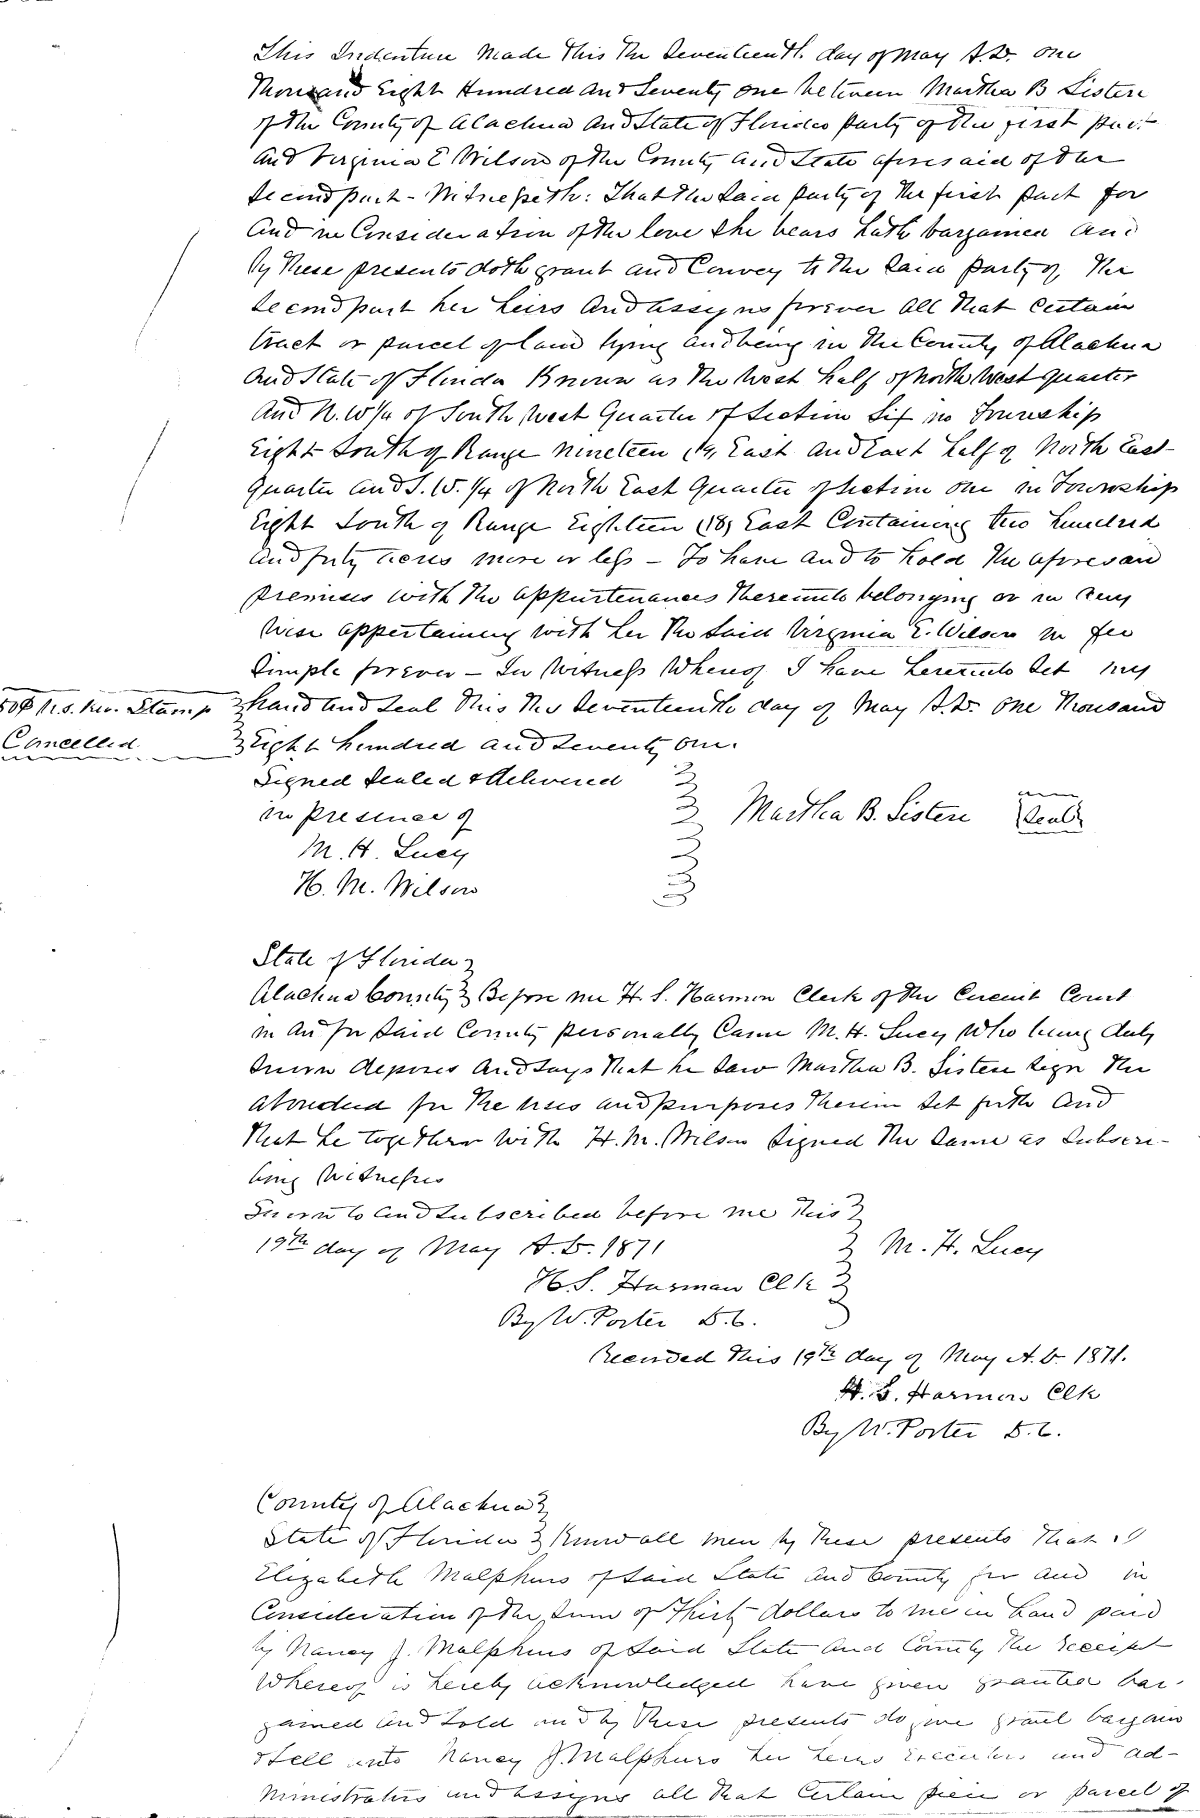 This Indenture Made This the Seventeenth day of May A.D. one
Thousand Eight Hundred and Seventy one between Martha B Sistere
of the County of Alachua and State of Florida party of the first part
and Virginia E Wilson of the County and State aforesaid of the
Second part - Witnesseth: That the Said party of the first part for
and in Consideration of the love she bears hath bargained and
by these presents doth grant and Convey to the Said party of the
Second part her heirs and assigns forever all that Certain
tract or parcel of land lying and being in the County of Alachua
and State of Florida Known as the West half of North West quarter
and N.W1/4 of South West Quarter of Section Six in Township
Eight South of Range nineteen (19) East and East half of North East
quarter and S.W. 1/4 of North East Quarter of Section one in Township
Eight South of Range Eighteen (18) East Containing two hundred
and forty acres more or less - To have and to hold the aforesaid
premises with the appurtenances thereunto belonging or in any
wise appertaining with her the Said Virginia E. Wilson in fee
Simple forever - In Witness Whereof I have hereunto Set my
50¢ U.S. Rev. Stamp hand and Seal This the Seventeenth day of May A.D. one thousand
Cancelled Eight hundred and Seventy one.
Signed Sealed & delivered
in presence of Martha B. Sistere Seal
M. H. Lucy
H. M. Wilson
State of Florida
Alachua County Before me H. S. Harmon Clerk of the Circuit Court
in and for Said County personally Came M. H. Lucy Who being duly
Sworn deposes and says that he saw Martha B. Sistere sign the
above deed for the uses and purposes therein Set forth and
that he together with H. M. Wilson Signed the Same as Subscri-
bing Witnesses
Sworn to and Subscribed before me this
19th day of May A.D. 1871 M. H. Lucy
H. S. Harmon Clk
By W. Porter D.C.
Recorded this 19th day of May A.D. 1871.
H. S. Harmon Clk
By W. Porter D.C.
County of Alachua
State of Florida Know all men by these presents that I
Elizabeth Malphurs of Said State and County for and in
Consideration of the Sum of Thirty dollars to me in hand paid
by Nancy J. Malphurs of Said State and County the receipt
Whereof is hereby acknowledged have given granted bar-
gained and Sold and by these presents do give grant bargain
& Sell unto Nancy J. Malphurs her heirs Executors and ad-
ministrators and assigns all that Certain piece or parcel of